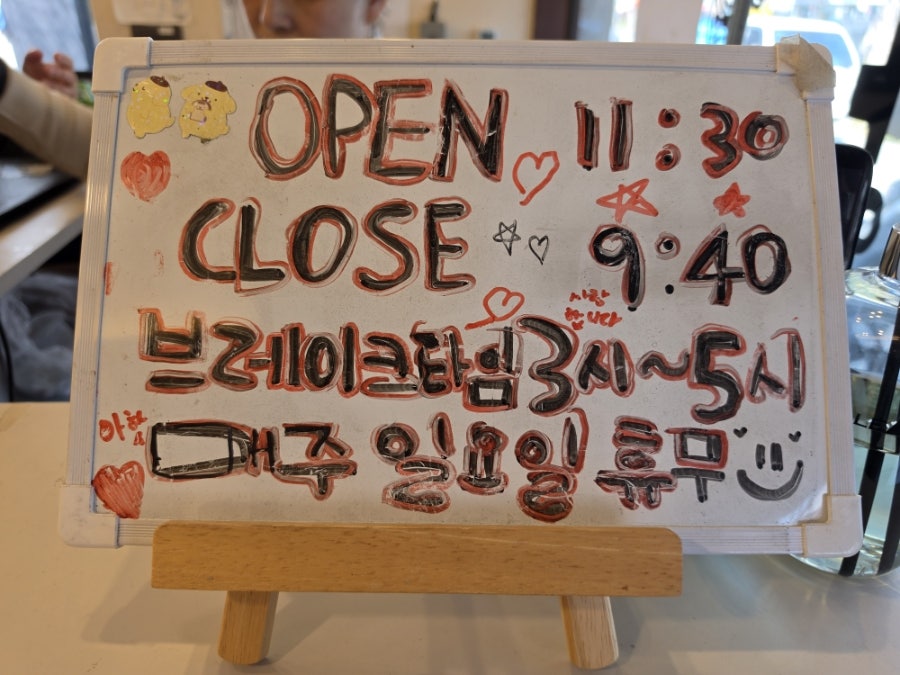 OPEN 11:30
CLOSE 9:40
사랑
합니다
브레이크타임 3시~5시
매주 일요일 휴무